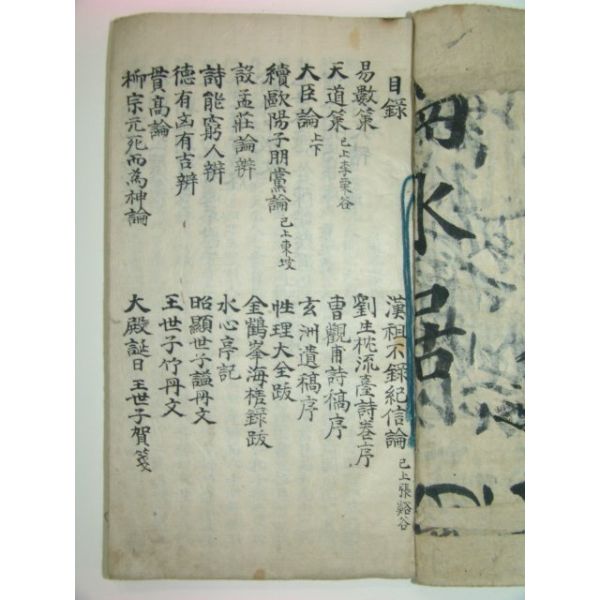 目録
易數策
天道策 已上李栗谷
大臣論 上下
續歐陽子朋黨論 已上東坡
設孟莊論辨
詩能窮人辨
德有凶有吉辨
貫高論
柳宗元死而為神論
漢祖不錄紀信論 已上張谿谷
劉生枕流臺詩卷序
曹觀甫詩稿序
玄洲遺稿序
性理大全跋
金鶴峯海槎錄跋
水心亭記
昭顯世子謚丹文
王世子竹丹文
大殿誕日王世子賀箋
水居